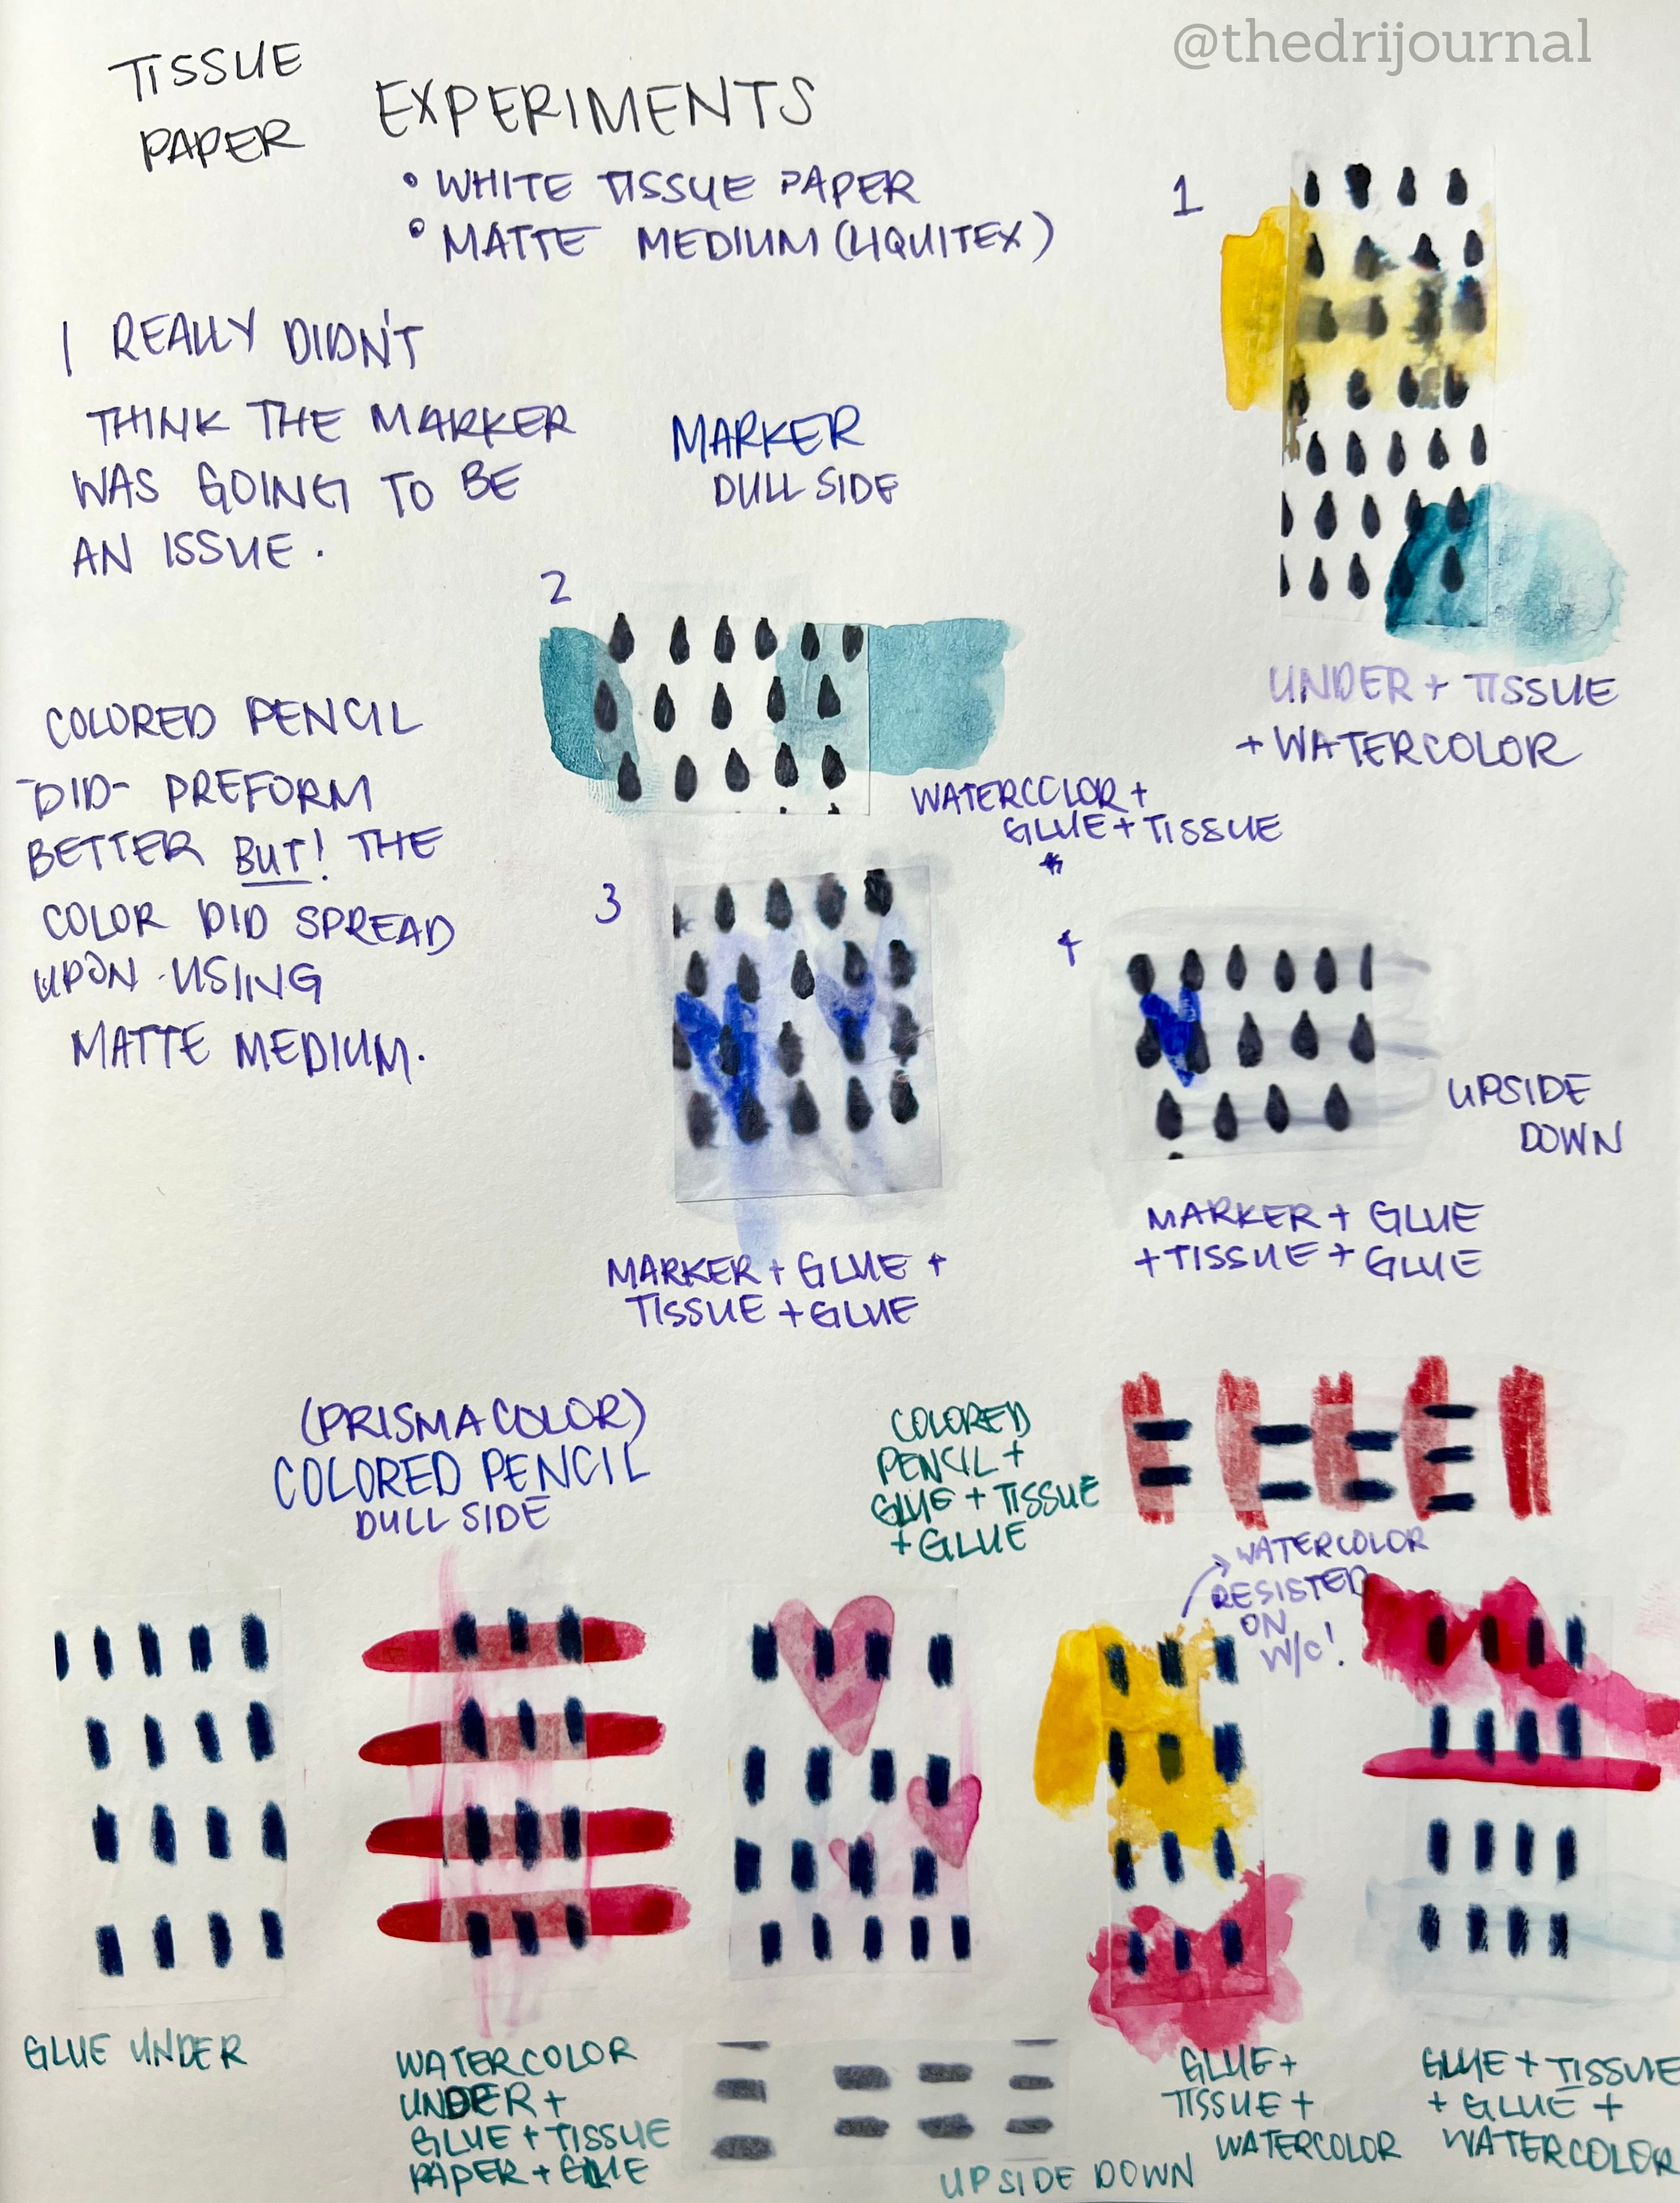 @thedrijournal
TISSUE
PAPER
EXPERIMENTS
• WHITE TISSUE PAPER
• MATTE MEDIUM (LIQUITEX)
I REALLY DIDN'T
THINK THE MARKER
WAS GOING TO BE
AN ISSUE.
MARKER
DULL SIDE
1
UNDER + TISSUE
+ WATERCOLOR
2
WATERCOLOR +
GLUE + TISSUE
*
COLORED PENCIL
-DID- PREFORM
BETTER BUT! THE
COLOR DID SPREAD
UPON USING
MATTE MEDIUM.
3
MARKER + GLUE +
TISSUE + GLUE
4
UPSIDE
DOWN
MARKER + GLUE
+ TISSUE + GLUE
(PRISMACOLOR)
COLORED PENCIL
DULL SIDE
COLORED
PENCIL +
GLUE + TISSUE
+ GLUE
WATERCOLOR
RESISTED
ON
W/C!
GLUE UNDER
WATERCOLOR
UNDER +
GLUE + TISSUE
PAPER + GLUE
UPSIDE DOWN
GLUE +
TISSUE +
WATERCOLOR
GLUE + TISSUE
+ GLUE +
WATERCOLOR